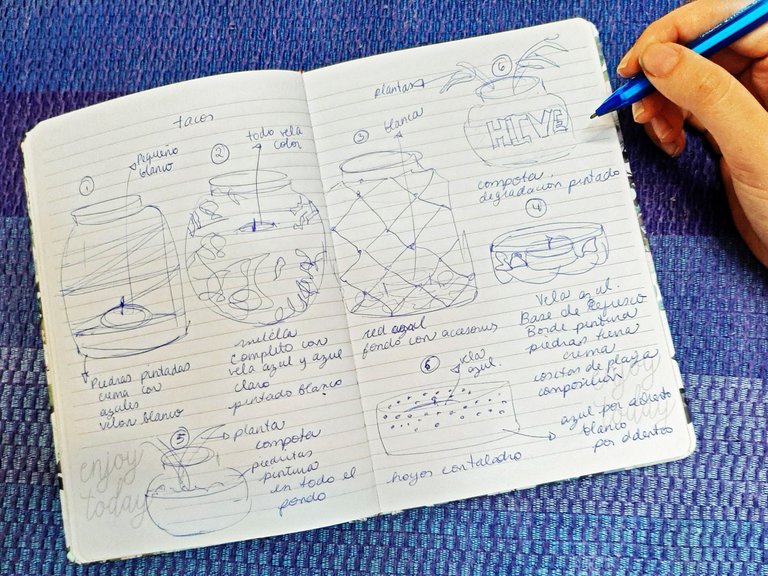 tacos
①
Pequeño
blanco
②
todo vela
color
Piedras pintadas
crema con
azules
velon blanco
mezcla
completo con
vela azul y azul
claro
pintado blanco
⑤
planta
compota
piedritas
pintura
en todo el
fondo
enjoy
today
③
blanca
red azul
fondo con accesorios
plantas
⑥
HIVE
compota.
degradacion pintado
④
Vela azul.
Base de refresco
Borde pintura
piedras tiena
crema
cositas de playa
composición
⑥
vela
azul.
azul por
blanco
por dentro
hoyos con taladro
enjoy
today